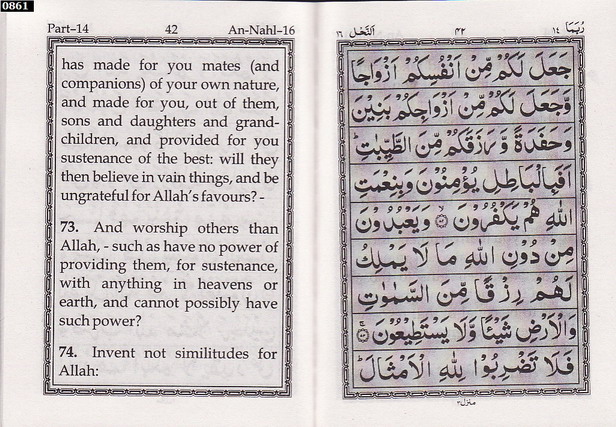 0861
Part–14 42 An-Nahl–16
has made for you mates (and
companions) of your own nature,
and made for you, out of them,
sons and daughters and grand-
children, and provided for you
sustenance of the best: will they
then believe in vain things, and be
ungrateful for Allah's favours? -
73. And worship others than
Allah, - such as have no power of
providing them, for sustenance,
with anything in heavens or
earth, and cannot possibly have
such power?
74. Invent not similitudes for
Allah:
رُبَمَا ١٤ ٤٢ اَلنَّحْل ١٦
جَعَلَ لَكُمْ مِّنْ اَنْفُسِكُمْ اَزْوَاجًا
وَّجَعَلَ لَكُمْ مِّنْ اَزْوَاجِكُمْ بَنِيْنَ
وَحَفَدَةً وَّرَزَقَكُمْ مِّنَ الطَّيِّبٰتِ ؕ
اَفَبِالْبَاطِلِ يُؤْمِنُوْنَ وَبِنِعْمَتِ
اللهِ هُمْ يَكْفُرُوْنَ ۝ وَيَعْبُدُوْنَ
مِنْ دُوْنِ اللهِ مَا لَا يَمْلِكُ
لَهُمْ رِزْقًا مِّنَ السَّمٰوٰتِ
وَالْاَرْضِ شَيْئًا وَّلَا يَسْتَطِيْعُوْنَ ۝
فَلَا تَضْرِبُوْا لِلّٰهِ الْاَمْثَالَ ؕ
منزل ٣